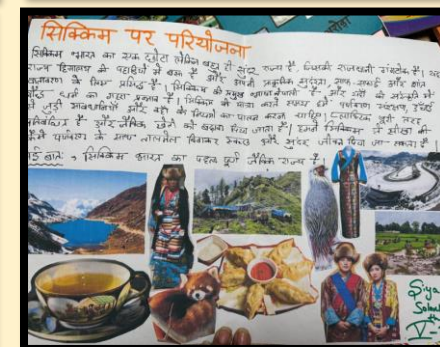 सिक्किम पर परियोजना
सिक्किम भारत का एक छोटा लेकिन बहुत ही सुंदर राज्य है, जिसकी राजधानी गंगटोक है। यह
राज्य हिमालय की पहाड़ियों में बसा है और अपनी प्राकृतिक सुंदरता, साफ-सफाई और शांत
वातावरण के लिए प्रसिद्ध है। सिक्किम की प्रमुख भाषा नेपाली है और यहाँ की संस्कृति में
बौद्ध धर्म का गहरा प्रभाव है। सिक्किम की यात्रा करते समय हमें पर्यावरण संरक्षण, ऊँचाई
से जुड़ी सावधानियाँ और वहाँ के नियमों का पालन करना चाहिए। प्लास्टिक पूरी तरह
प्रतिबंधित है और जैविक खेती को बढ़ावा दिया जाता है। हमने सिक्किम से सीखा की
कैसे पर्यावरण के साथ तालमेल बिठाकर स्वच्छ और सुंदर जीवन जिया जा सकता है।
सिक्किम भारत का पहला पूर्ण जैविक राज्य है।
Siya
V